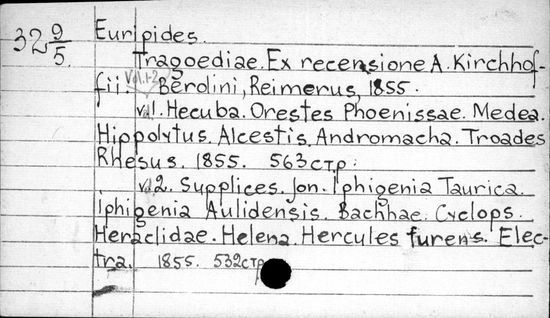 32 9/5.
Euripides.
Tragoediae. Ex recensione A. Kirchhof-
fii. Vol.1-2 Berolini, Reimerus, 1855.
vol1. Hecuba. Orestes Phoenissae. Medea.
Hippolytus. Alcestis. Andromacha. Troades
Rhesus. 1855. 563стр.
vol2. Supplices. Jon. Iphigenia Taurica.
Iphigenia Aulidensis. Bachhae. Cyclops.
Heraclidae. Helena. Hercules furens. Elec-
tra. 1855. 532стр